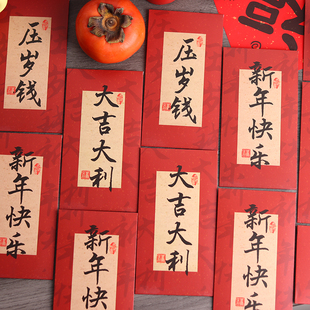 压岁钱
大吉大利
压岁钱
新年快乐
新年快乐
新年快
大吉大利
新年快